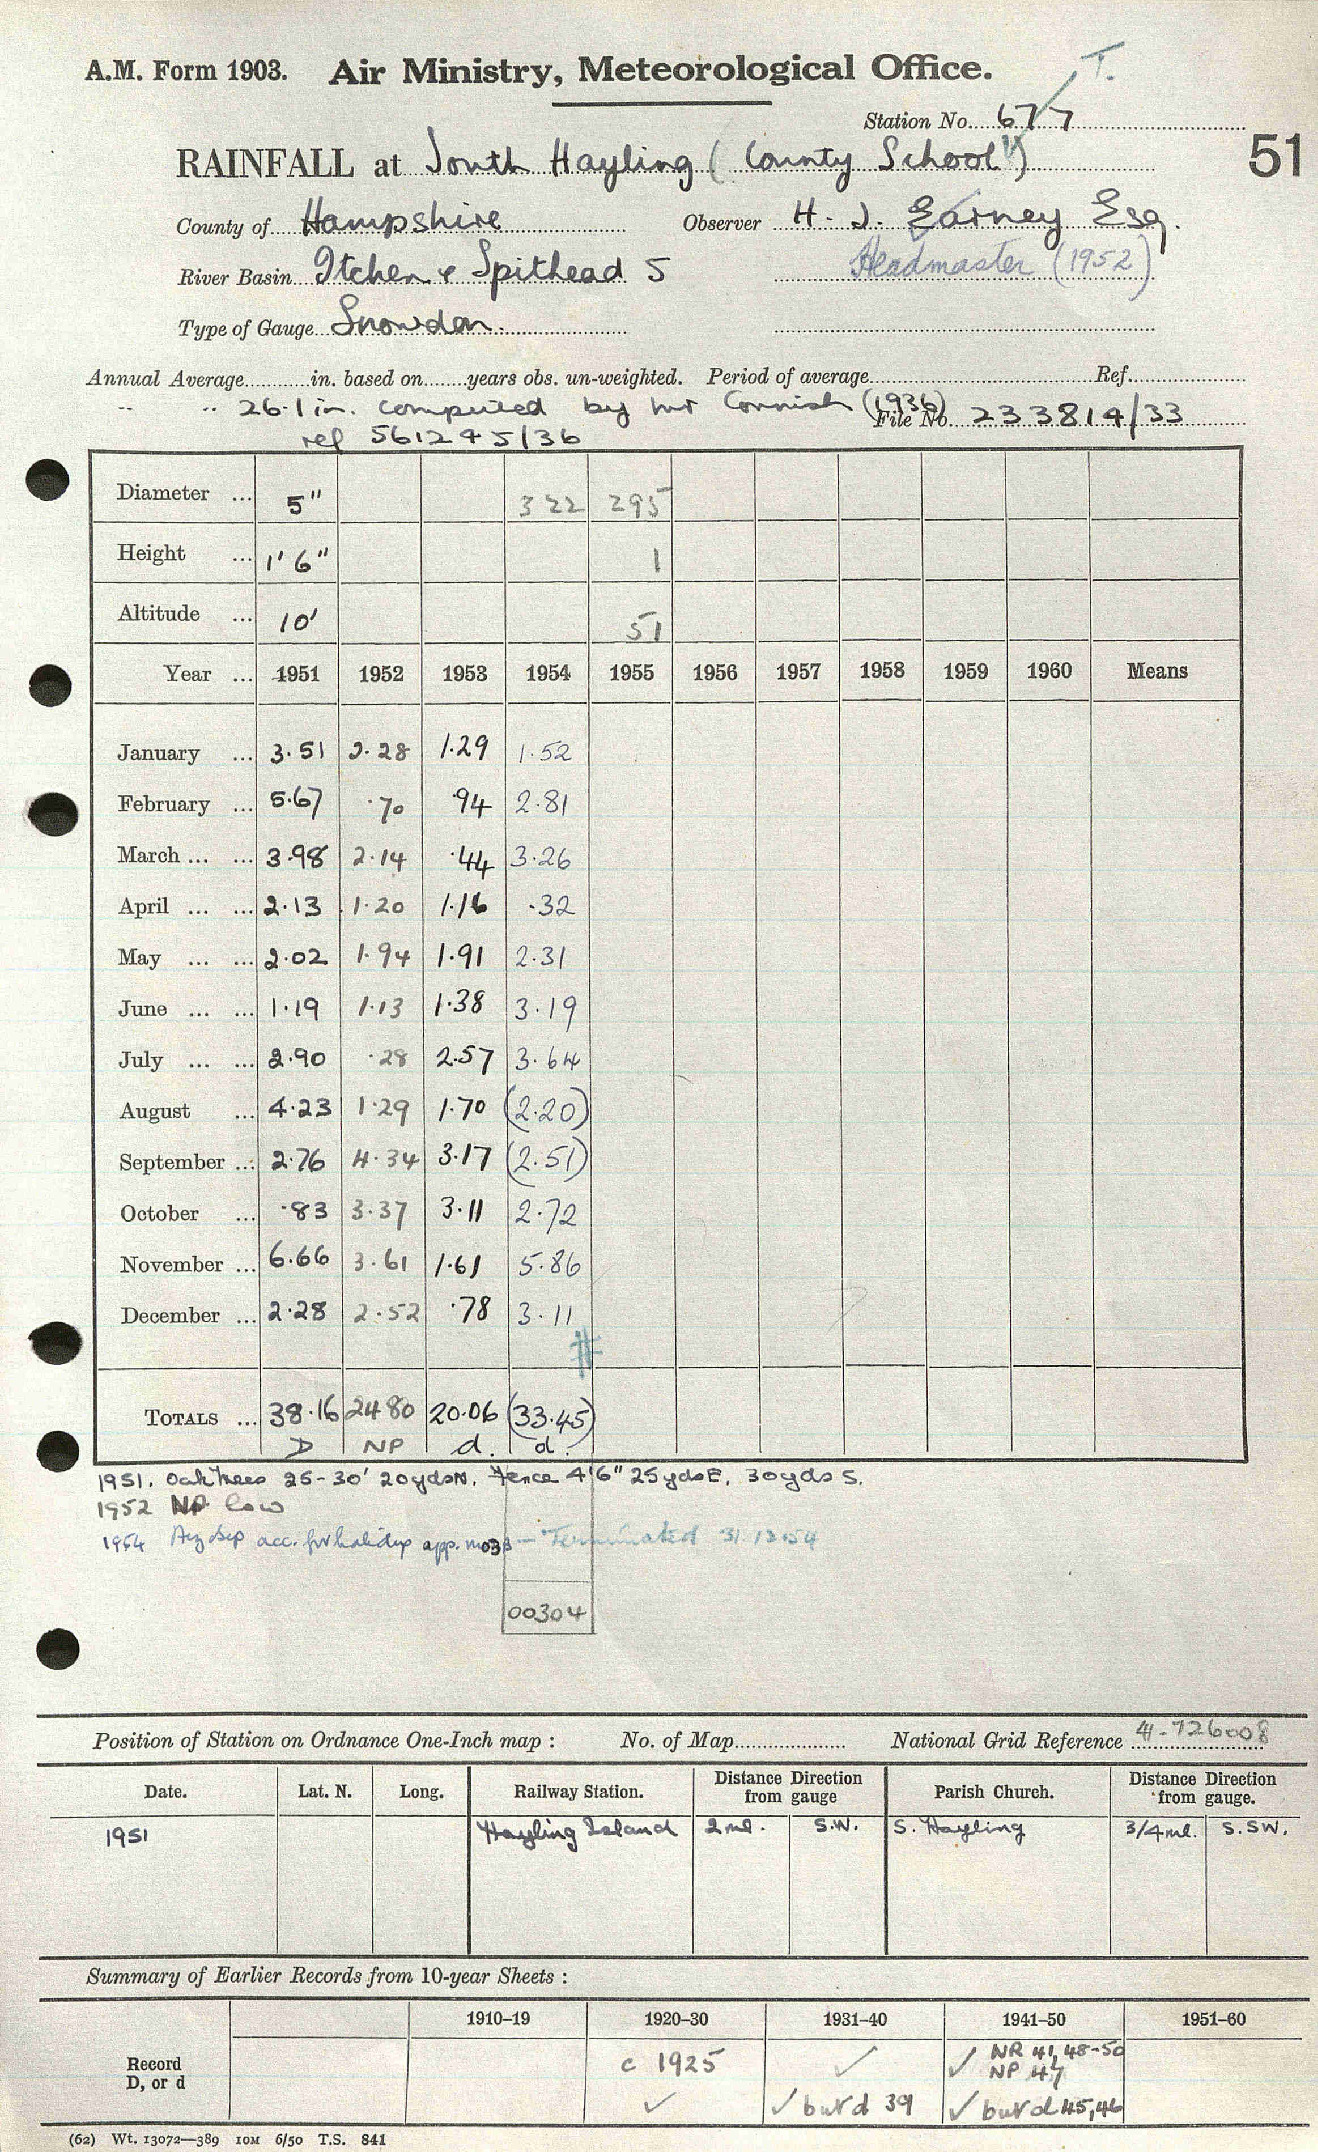 T.
A.M. Form 1903. Air Ministry, Meteorological Office.
Station No. 677
51
RAINFALL at South Hayling (County School)
County of Hampshire Observer H. J. Earney Esq.
River Basin Itchen & Spithead 5 Headmaster (1952)
Type of Gauge Snowdon.
Annual Average in. based on years obs. un-weighted. Period of average Ref.
" " 26.1 in. computed by Mr Cornish (1936) File No. 233814/33
ref 561245/36
Diameter ... 5" 322 295
Height ... 1' 6" 1
Altitude ... 10' 51
Year ... 1951 1952 1953 1954 1955 1956 1957 1958 1959 1960 Means
January ... 3.51 2.28 1.29 1.52
February ... 5.67 .70 .94 2.81
March ... ... 3.98 2.14 .44 3.26
April ... ... 2.13 1.20 1.16 .32
May ... ... 2.02 1.94 1.91 2.31
June ... ... 1.19 1.13 1.38 3.19
July ... ... 2.90 .28 2.57 3.64
August ... 4.23 1.29 1.70 (2.20)
September ... 2.76 4.34 3.17 (2.51)
October ... .83 3.37 3.11 2.72
November ... 6.66 3.61 1.61 5.86
December ... 2.28 2.52 .78 3.11
#
TOTALS ... 38.16 24 80 20.06 (33.45)
D NP d. d.
1951. Oak trees 25-30' 20yds N. Fence 4'6" 25yds E, 30yds S.
1952 NP low
1954 Aug Sep acc. for holiday app. MO3B - Terminated 31.12.54
00304
Position of Station on Ordnance One-Inch map : No. of Map National Grid Reference 41.726008
Date. Lat. N. Long. Railway Station. Distance from gauge Direction Parish Church. Distance from gauge. Direction
1951 Hayling Island 2 ml. S.W. S. Hayling 3/4 ml. S.SW.
Summary of Earlier Records from 10-year Sheets :
1910–19 1920–30 1931–40 1941–50 1951–60
Record D, or d c 1925 ✓ ✓ NR 41, 48-50 NP 47
✓ ✓ but d 39 ✓ but d 45, 46
(62) Wt. 13072—389 10M 6/50 T.S. 841